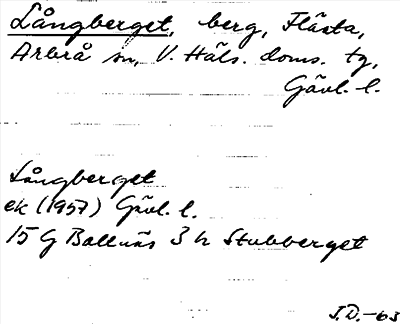 Långberget, berg, Flästa,
Arbrå sn, V. Häls. doms. tg,
Gävl. l.
Långberget
ek (1957) Gävl. l.
15 G Bollnäs 3 h Stubberget
J.D.-63